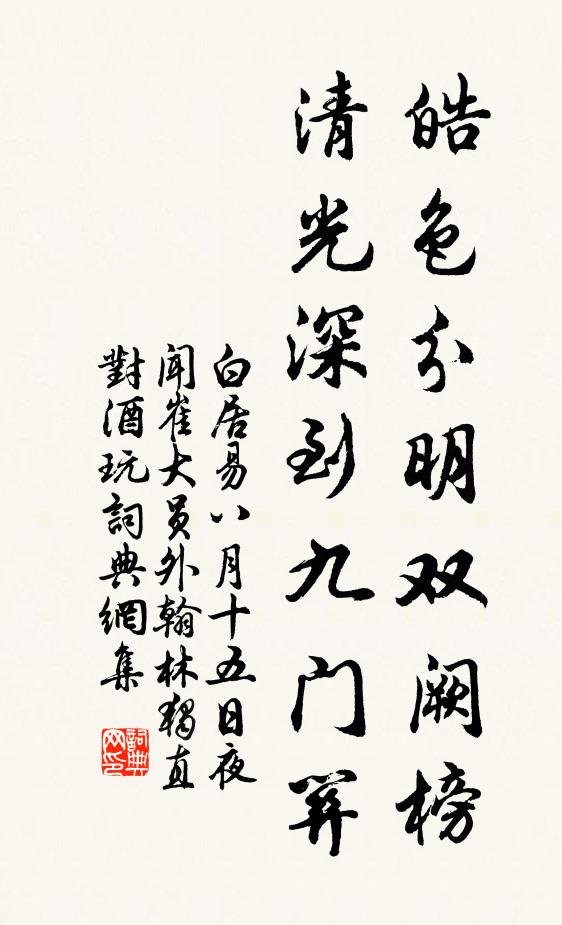 皓色分明双阙榜
清光深到九门关
白居易八月十五日夜
聞崔大員外翰林獨直
對酒玩詞典網集
詞典网印